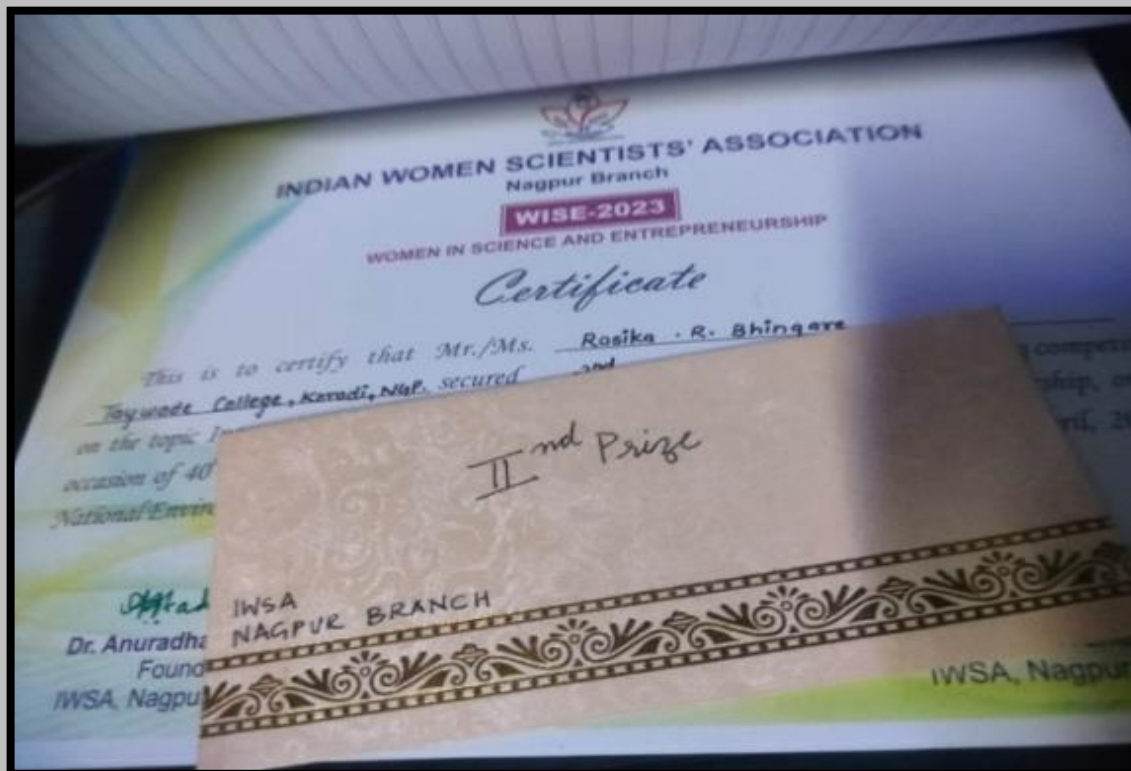 INDIAN WOMEN SCIENTISTS' ASSOCIATION
Nagpur Branch
WISE-2023
WOMEN IN SCIENCE AND ENTREPRENEURSHIP
Certificate
This is to certify that Mr./Ms. Rasika . R. Bhingare
Taywade College, Koradi, NGP. secured 2nd
on the topic
ship, on
occasion of 40
ril, 20
National Enviro
IInd Prize
IWSA
NAGPUR BRANCH
Dr. Anuradha
Found
IWSA, Nagpu
IWSA, Nagpur